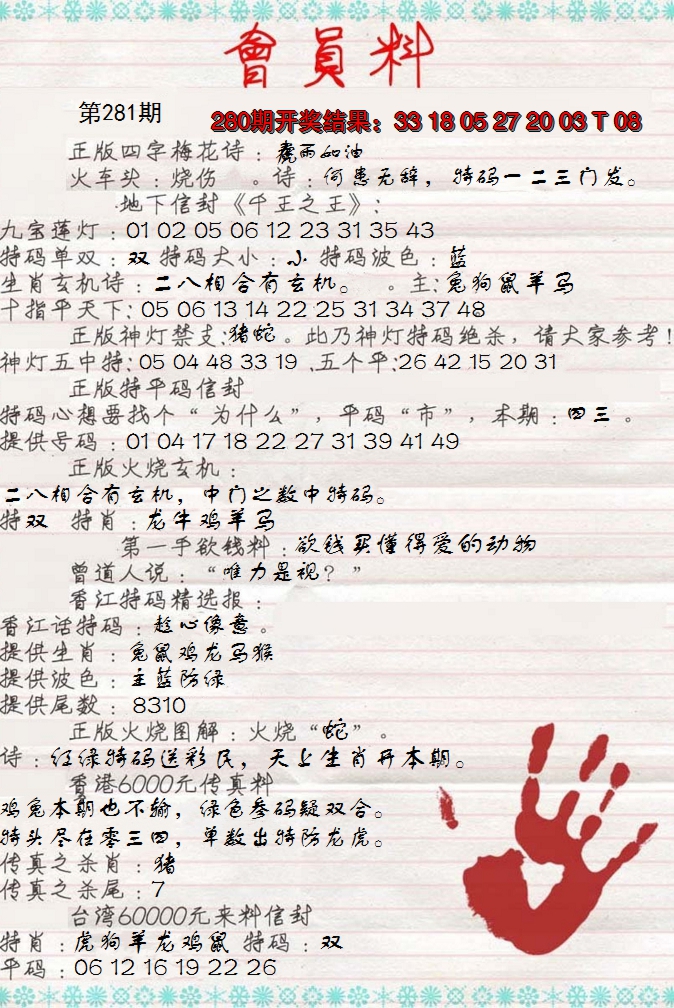 會員料
第281期
280期开奖结果：33 18 05 27 20 03 T 08
正版四字梅花诗：雨如油
火车头：烧伤 。诗：何患无辞，特码一二三门发。
地下信封《千王之王》：
九宝莲灯：01 02 05 06 12 23 31 35 43
特码单双：双 特码大小：小 特码波色：蓝
生肖玄机诗：二八相合有玄机。 。主：兔狗鼠羊马
十指平天下：05 06 13 14 22 25 31 34 37 48
正版神灯禁支：猪蛇。此乃神灯特码绝杀，请大家参考！
神灯五中特：05 04 48 33 19 .五个平：26 42 15 20 31
正版特平码信封
特码心想要找个“为什么”，平码“市”，本期：四三。
提供号码：01 04 17 18 22 27 31 39 41 49
正版火烧玄机：
二八相合有玄机，中门之数中特码。
特双 特肖：龙牛鸡羊马
第一手欲钱料：欲钱买懂得爱的动物
曾道人说：“唯力是视？”
香江特码精选报：
香江话特码：趁心像意。
提供生肖：兔鼠鸡龙马猴
提供波色：主蓝防绿
提供尾数：8310
正版火烧图解：火烧“蛇”。
诗：红绿特码送彩民，天上生肖开本期。
香港6000元传真料
鸡兔本期也不输，绿色参码疑双合。
特头尽在零三四，单数出特防龙虎。
传真之杀肖：猪
传真之杀尾：7
台湾60000元来料信封
特肖：虎狗羊龙鸡鼠 特码：双
平码：06 12 16 19 22 26